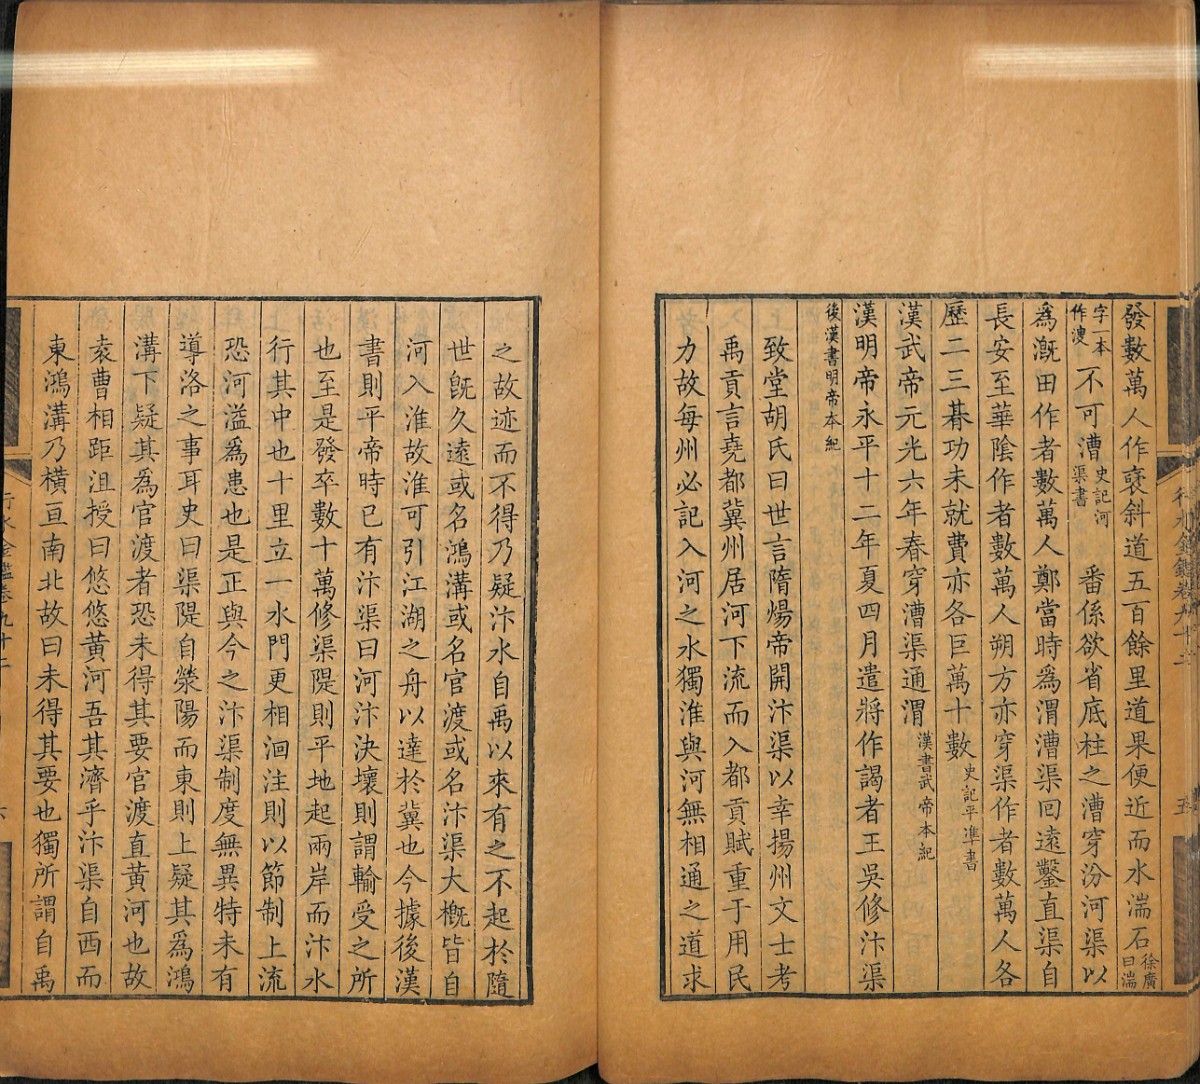 發數萬人作襃斜道五百餘里道果便近而水湍石徐廣曰湍
字一本作溲不可漕史記河渠書 番係欲省底柱之漕穿汾河渠以
為溉田作者數萬人鄭當時為渭漕渠回遠鑿直渠自
長安至華陰作者數萬人朔方亦穿渠作者數萬人各
歷二三朞功未就費亦各巨萬十數史記平準書
漢武帝元光六年春穿漕渠通渭漢書武帝本紀
漢明帝永平十二年夏四月遣將作謁者王吳修汴渠
後漢書明帝本紀
致堂胡氏曰世言隋煬帝開汴渠以幸揚州文士考
禹貢言堯都冀州居河下流而入都貢賦重于用民
力故每州必記入河之水獨淮與河無相通之道求
之故迹而不得乃疑汴水自禹以來有之不起於隋
世旣久遠或名鴻溝或名官渡或名汴渠大槪皆自
河入淮故淮可引江湖之舟以達於冀也今據後漢
書則平帝時已有汴渠曰河汴決壞則謂輸受之所
也至是發卒數十萬修渠隄則平地起兩岸而汴水
行其中也十里立一水門更相洄注則以節制上流
恐河溢為患也是正與今之汴渠制度無異特未有
導洛之事耳史曰渠隄自滎陽而東則上疑其為鴻
溝下疑其為官渡者恐未得其要官渡直黃河也故
袁曹相距沮授曰悠悠黃河吾其濟乎汴渠自西而
東鴻溝乃橫亘南北故曰未得其要也獨所謂自禹
行水金鑑卷九十二
六